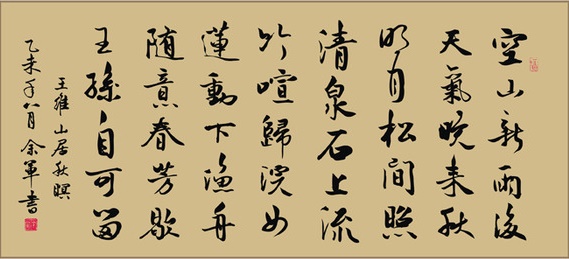 空山新雨後
天氣晚来秋
明月松間照
清泉石上流
竹喧歸浣女
蓮動下渔舟
随意春芳歇
王孫自可留
王維山居秋暝
乙未年八月余軍書